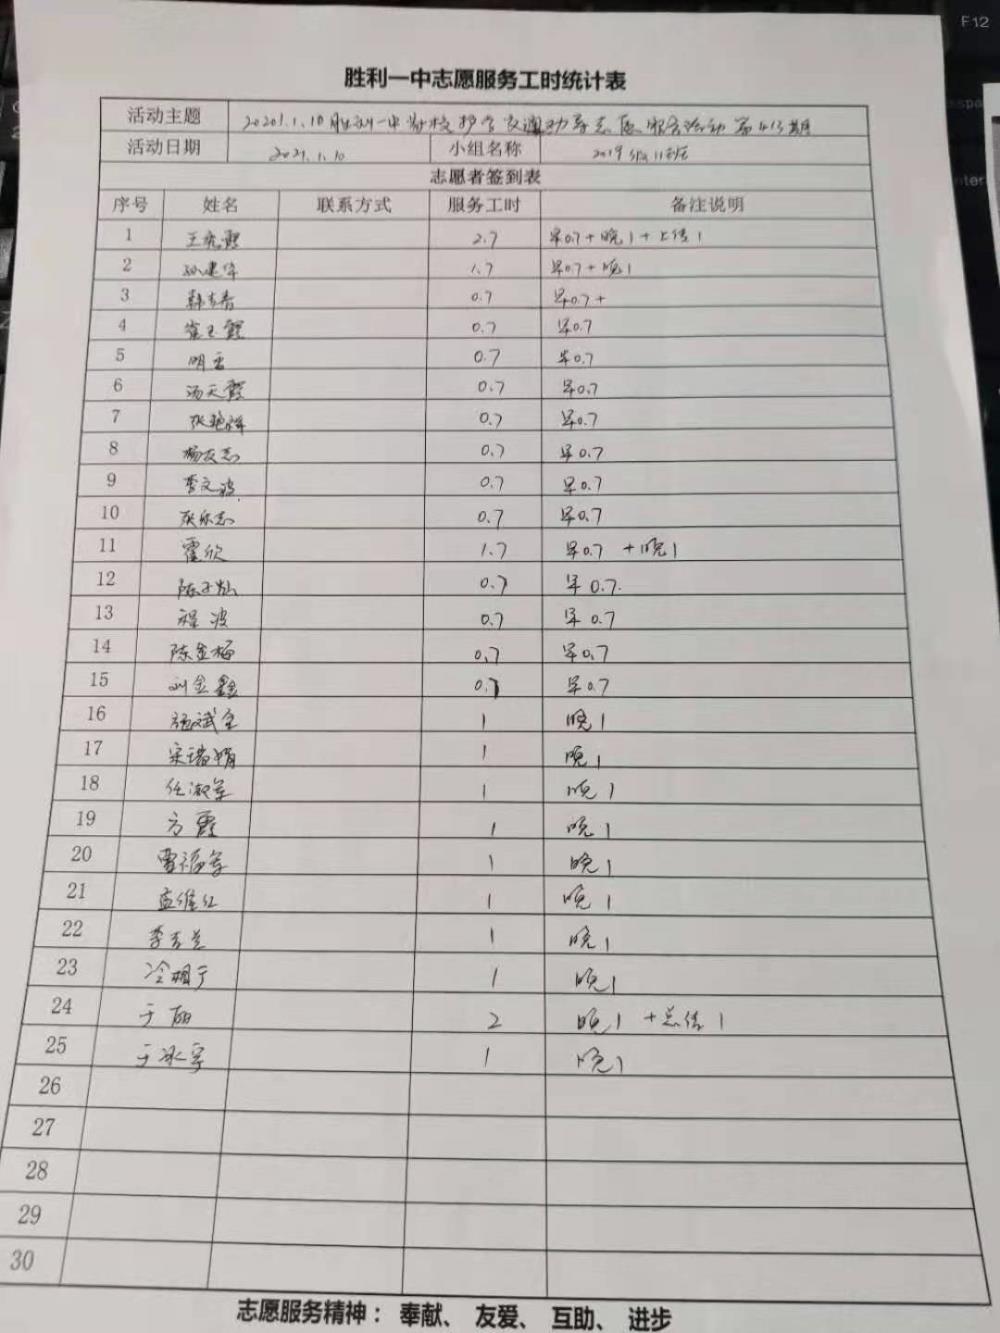 F12
胜利一中志愿服务工时统计表
活动主题 20201.1.10胜利一中 护学交通劝导志愿服务活动第413期
活动日期 2021.1.10 小组名称 2019级11班
志愿者签到表
序号 姓名 联系方式 服务工时 备注说明
1 王 霞 2.7 早0.7+晚1+上传1
2 孙建 1.7 早0.7+晚1
3 韩 香 0.7 早0.7+
4 崔玉霞 0.7 早0.7
5 明 0.7 早0.7
6 汤天霞 0.7 早0.7
7 张艳辉 0.7 早0.7
8 杨友志 0.7 早0.7
9 李文波 0.7 早0.7
10 张乐志 0.7 早0.7
11 霍欣 1.7 早0.7 +晚1
12 陈子 0.7 早0.7.
13 程波 0.7 早0.7
14 陈金梅 0.7 早0.7
15 刘金鑫 0.7 早0.7
16 斌全 1 晚1
17 宋瑞娟 1 晚1
18 任淑 1 晚1
19 方霞 1 晚1
20 雷福 1 晚1
21 孟维红 1 晚1
22 李吉兰 1 晚1
23 冷相于 1 晚1
24 于丽 2 晚1 +总结1
25 于冰 1 晚1
26
27
28
29
30
志愿服务精神： 奉献、 友爱、 互助、 进步